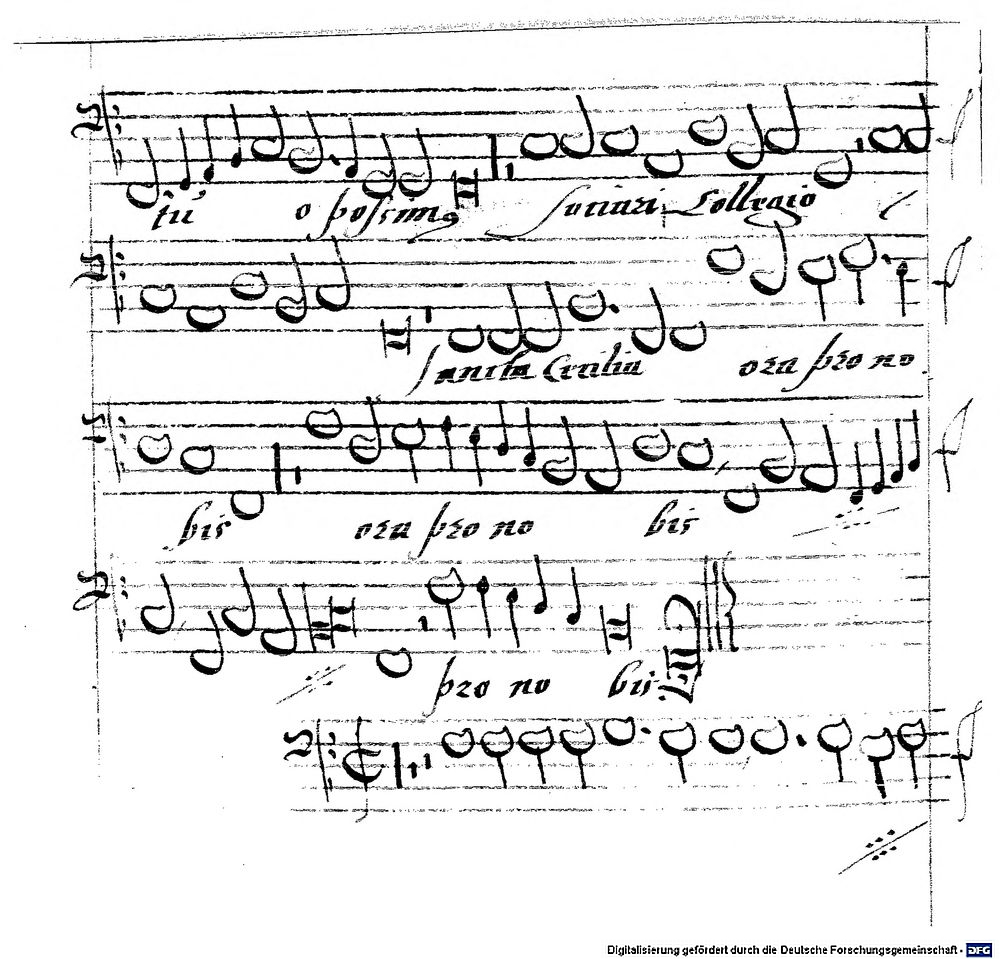 tu o possimꝰ sociari Collegio
sancta Cecilia ora pro no
bis ora pro no bis
pro no bis
Digitalisierung gefördert durch die Deutsche Forschungsgemeinschaft - DFG